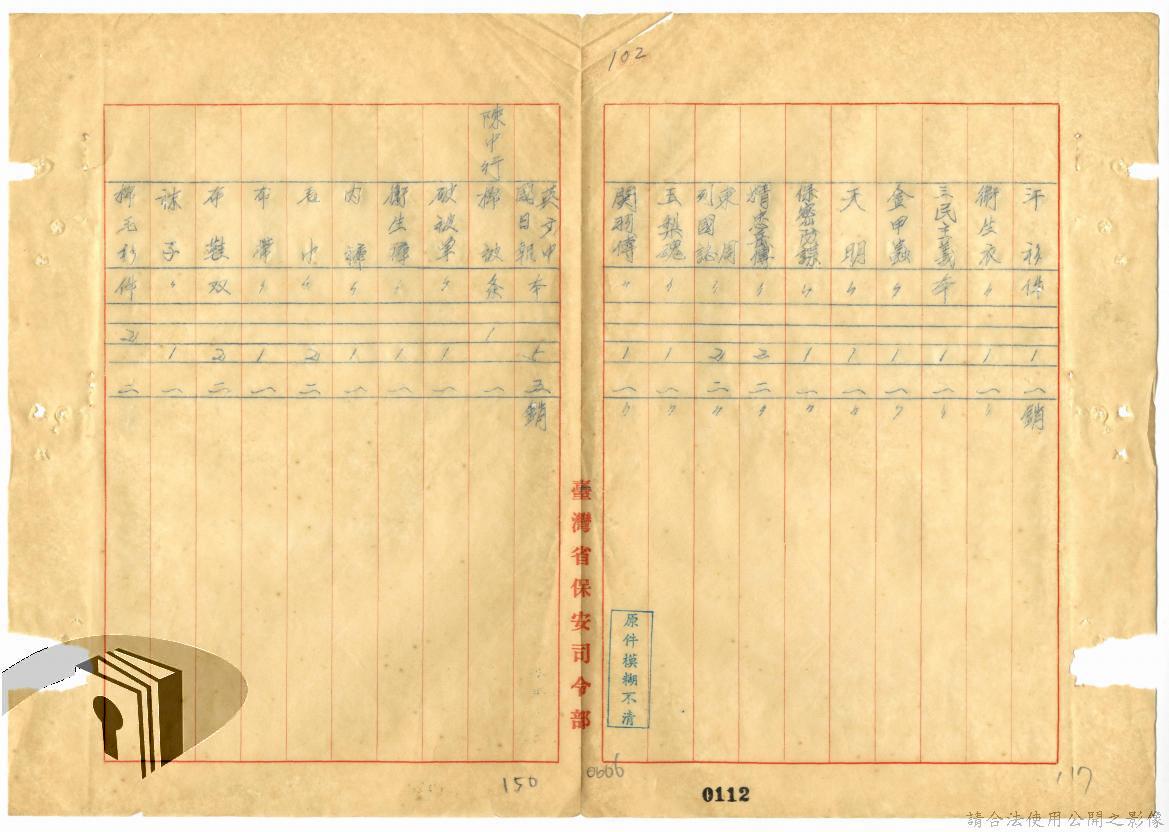 102
汗衫 件 1 一 銷
衛生衣 〃 1 一 〃
三民主義 本 1 一 〃
金甲蟲 〃 1 一 〃
天明 〃 1 一 〃
保密防諜 〃 1 一 〃
精忠岳傳 〃 2 二 〃
東周列國誌 〃 2 二 〃
玉梨魂 〃 1 一 〃
関羽傳 〃 1 一 〃
臺灣省保安司令部
原件模糊不清
英文中國日報 本 5 五 銷
陳中行
被 条 1 一
破被單 〃 1 一
衛生褲 〃 1 一
内褲 〃 1 一
毛巾 〃 2 二
布帶 〃 1 一
布鞋 双 2 二
襪子 〃 1 一
毛衫 件 2 二
150
0666
0112
117
請合法使用公開之影像